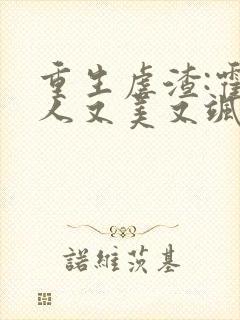 重生虐渣:霍
人又美又飒
諾維茨基